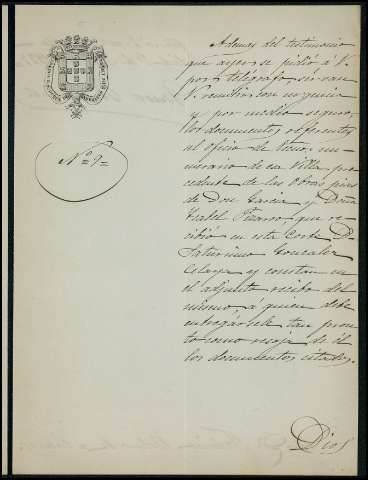 Nº 9=
Además del testimonio
que ayer se pidió á V.
por telégrafo, sírvase
V. remitir con urgencia
y por medio seguro,
los documentos referentes
al oficio de
de esa Villa, pro-
cedente de las Obras pias
de Don Garcia y Doña
Isabel Pizarro, que re-
cibió en esta Corte D.
Saturnino Gonzalez
Celaya y constan en
el adjunto recibo del
mismo, á quien debe
entregársele tan pron-
to como recoja de él
los documentos citados.
Dios